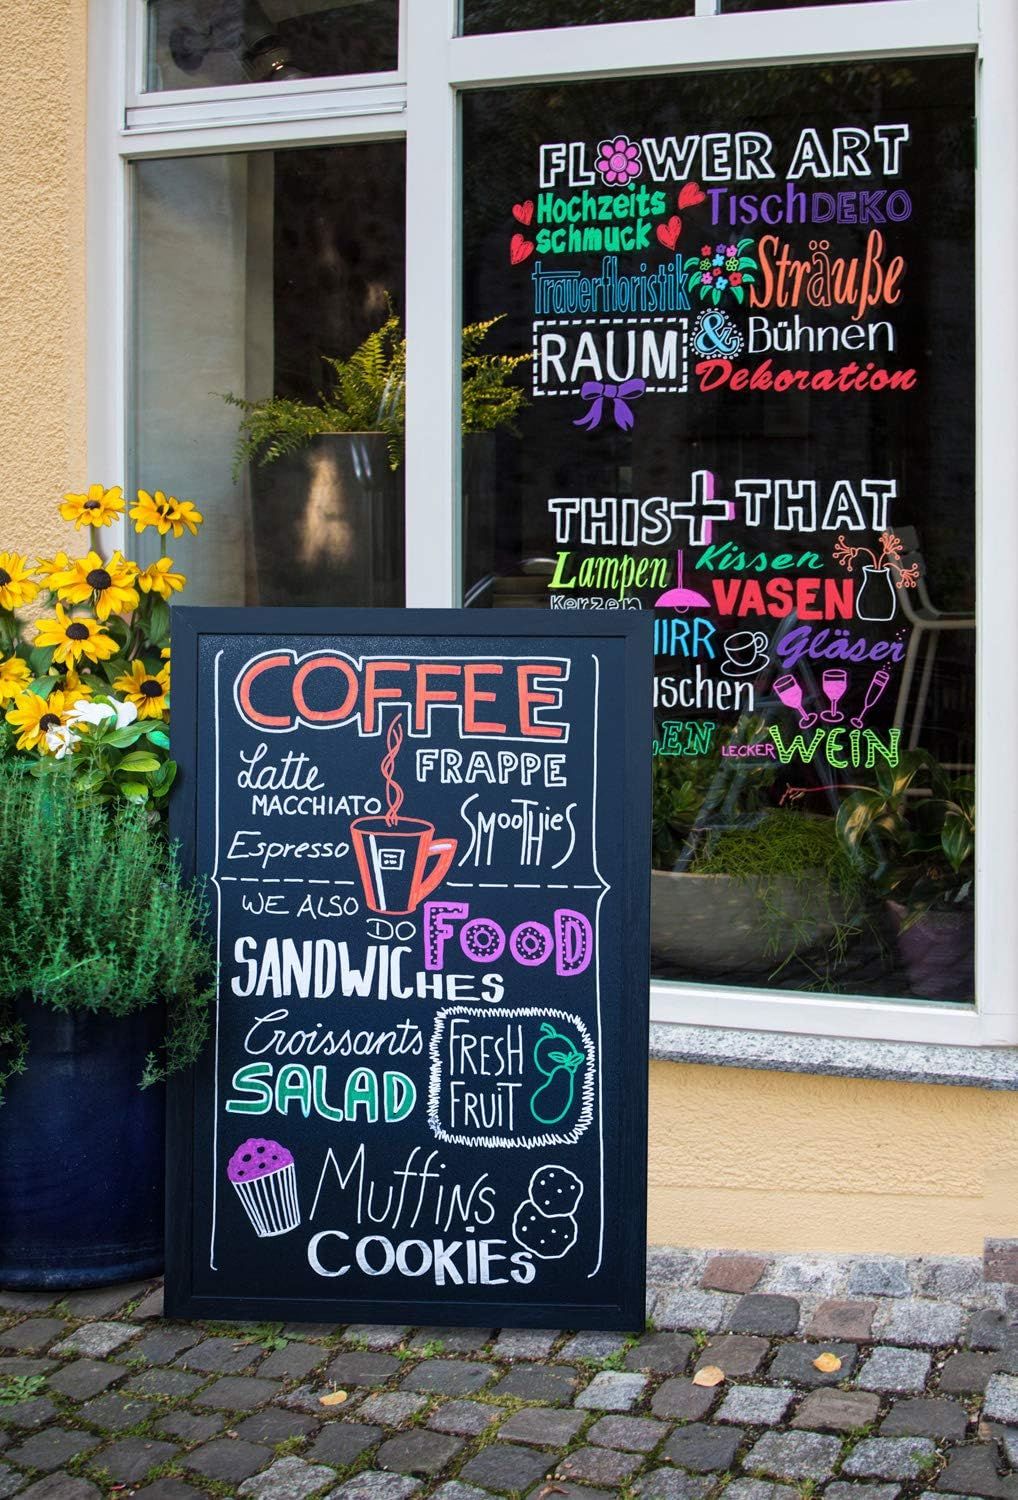 FLOWER ART
Hochzeits
schmuck
TischDEKO
trauerfloristik
Sträuße
RAUM & Bühnen
Dekoration
THIS + THAT
Lampen
Kissen
Kerzen
VASEN
Gläser
LECKER WEIN
COFFEE
Latte
MACCHIATO
FRAPPE
Espresso
SMOOTHIES
WE ALSO
DO
FOOD
SANDWICHES
Croissants
SALAD
FRESH
FRUIT
MUFFINS
COOKIES